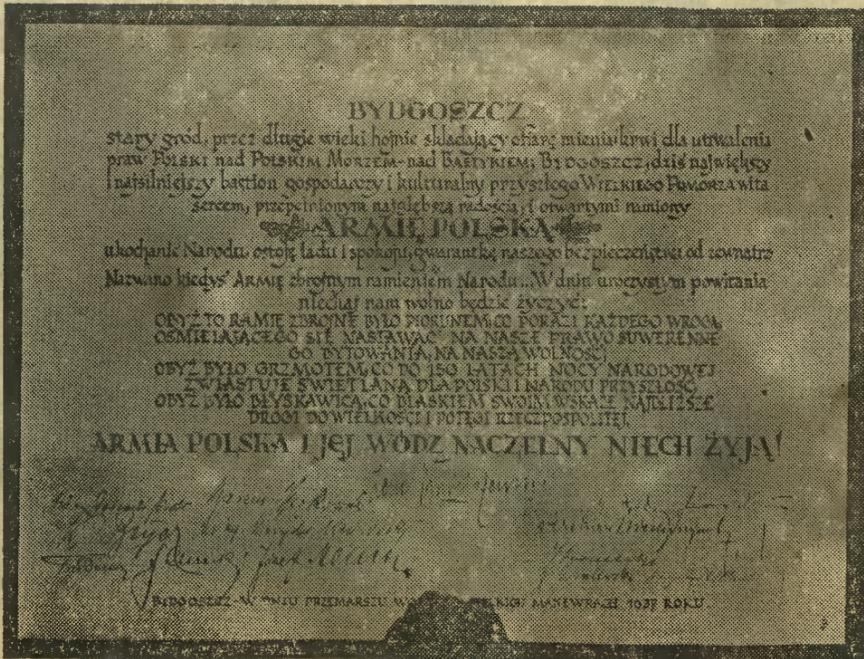 BYDGOSZCZ
stary gród, przez długie wieki hojnie składający ofiarę mienia i krwi dla utrwalenia
praw POLSKI nad POLSKIM MORZEM - nad BAŁTYKIEM, BYDGOSZCZ, dziś największy
i najsilniejszy bastion gospodarczy i kulturalny przyszłego WIELKIEGO POMORZA wita
sercem, przepełnionym najgłębszą radością, i otwartymi ramiony
ARMIĘ POLSKĄ
ukochanie Narodu, ostoję ładu i spokoju, gwarantkę naszego bezpieczeństwa od zewnątrz
Nazwano kiedyś ARMIĘ zbrojnym ramieniem Narodu... W dniu uroczystym powitania
niechaj nam wolno będzie życzyć:
OBYŻ TO RAMIĘ ZBROJNE BYŁO PIORUNEM, CO PORAZI KAŻDEGO WROGA,
OŚMIELAJĄCEGO SIĘ NASTAWAĆ NA NASZE PRAWO SUWERENNE-
GO BYTOWANIA, NA NASZĄ WOLNOŚĆ;
OBYŻ BYŁO GRZMOTEM, CO PO 150 LATACH NOCY NARODOWEJ
ZWIASTUJE ŚWIETLANĄ DLA POLSKI I NARODU PRZYSZŁOŚĆ,
OBYŻ BYŁO BŁYSKAWICĄ, CO BLASKIEM SWOIM WSKAŻE NAJBLIŻSZE
DROGI DO WIELKOŚCI I POTĘGI RZECZPOSPOLITEJ.
ARMIA POLSKA I JEJ WÓDZ NACZELNY NIECH ŻYJĄ!
Józef
BYDGOSZCZ - W DNIU PRZEMARSZU MANEWRACH 1937 ROKU.